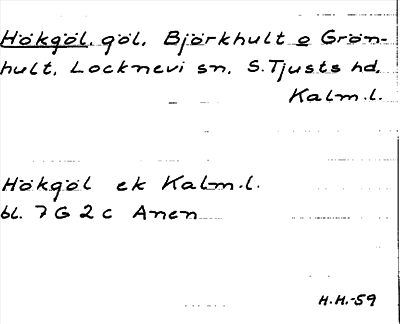 Hökgöl, göl, Björkhult o Grön-
hult, Locknevi sn, S.Tjusts hd,
Kalm.l.
Hökgöl ek Kalm.l.
bl. 7 G 2 c Anen
H.H.-59